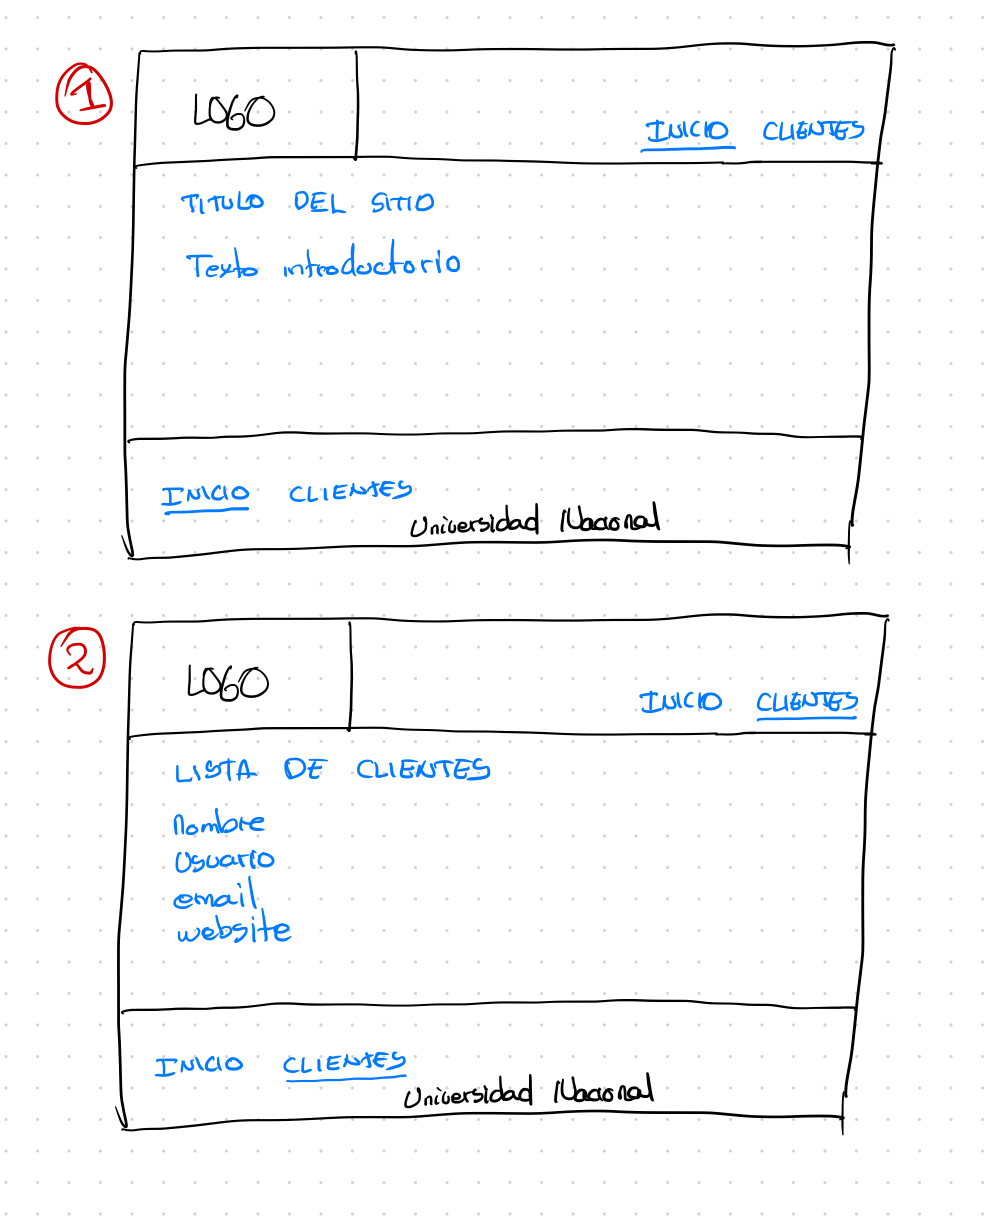 1
LOGO
INICIO CLIENTES
TITULO DEL SITIO
Texto introductorio
INICIO CLIENTES
Universidad Nacional
2
LOGO
INICIO CLIENTES
LISTA DE CLIENTES
nombre
Usuario
email
website
INICIO CLIENTES
Universidad Nacional